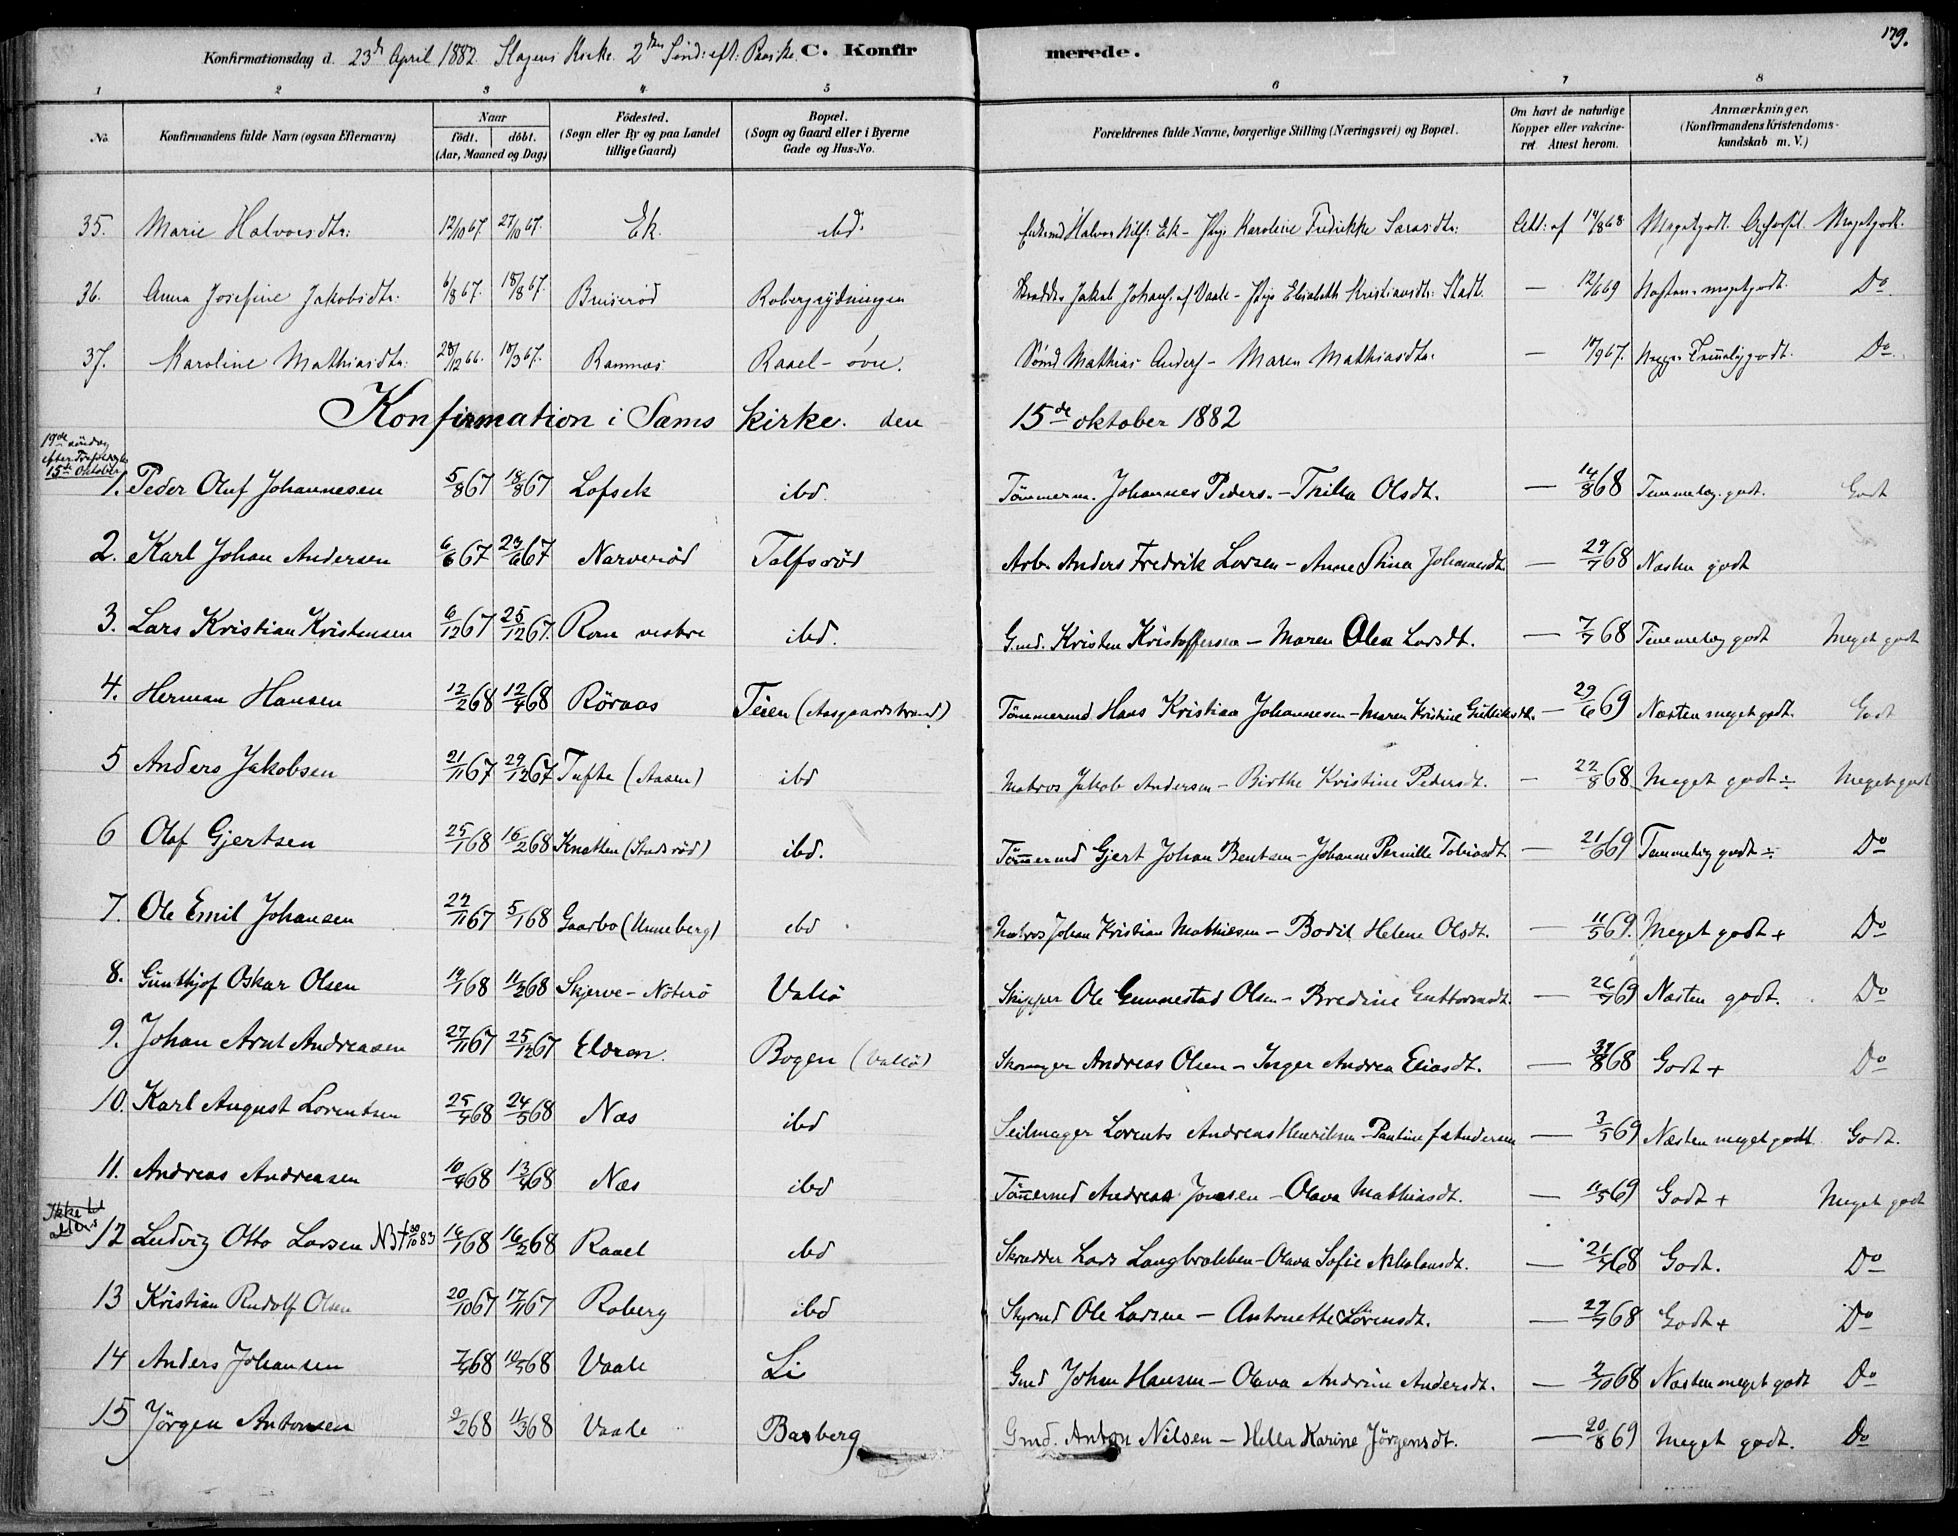 179.
Konfirmationsdag d. 23de April 1882. Slagens Kirke. 2den Sønd: eft: Paaske. C. Konfirmerede.
1 2 3 4 5 6 7 8
No. Konfirmandens fulde Navn (ogsaa Efternavn) Naar født. døbt. (Aar, Maaned og Dag) Födested. (Sogn eller By og paa Landet tillige Gaard) Bopæl. (Sogn og Gaard eller i Byerne Gade og Hus-No. Forældrenes fulde Navne, borgerlige Stilling (Næringsvei) og Bopæl. Om havt de naturlige Kopper eller vakcineret. Attest herom. Anmærkninger. (Konfirmandens Kristendomskundskab m. V.)
35. Marie Halvorsdtr: 12/10 67. 27/10 67. Ek. ibd. Halvor Ek - Karoline Fredrikke Att: af 14/8 68 Megetgodt. Megetgodt.
36. Anna Josefine Jakobsdtr: 6/8 67. 18/8 67. Bruserød Robergrydningen Jakob Johans. af Vaale - Elisabeth Kristiansdtr: — 12/6 69 Næsten megetgodt. Do
37. Karoline Mathiasdtr: 28/12 66. 10/3 67. Ramnæs Raael - øvre. Mathias Anders - Maren Mathiasdtr: — 10/9 67. godt. Do
Konfirmation i Sems kirke. den 15de oktober 1882
19de söndag efter Trefoldigh. 15de Oktober
1. Peder Oluf Johannesen 5/8 67 18/8 67 Lofsek ibd. Tømmerm. Johannes Peders. - Trilla Olsdt. — 14/8 68 Temmelig godt. Godt
2. Karl Johan Andersen 6/6 67 23/6 67 Narverød Tolfsrød Arb. Anders Fredrik Larsen - Anne Stina Johannesdt. — 29/7 68 Næsten godt
3. Lars Kristian Kristensen 6/12 67 25/12 67. Rom vestre ibd. Gmd. Kristen Kristoffersen - Maren Olea Larsdt. — 7/7 68 Temmelig godt Meget godt
4. Herman Hansen 12/2 68 12/4 68 Röraas Teien (Aasgaardstrand) Tømmermd Hans Kristian Johannesen - Maren Kristine Gulliksdt. — 29/6 69 Næsten meget godt. Godt
5 Anders Jakobsen 21/11 67 29/12 67 Tufte (Aasen) ibd Matros Jakob Andersen - Birthe Kristine Pedersdt. — 22/8 68 Meget godt ÷ Meget godt
6 Olaf Gjertsen 25/1 68 16/2 68 Knatten (Stadsrød) ibd. Tömmermd Gjert Johan Bentsen - Johanne Pernille Tobiasdt. — 21/6 69 Temmelig godt ÷ Do
7. Ole Emil Johansen 22/11 67 5/1 68 Gaarbo (Unneberg) ibd Matros Johan Kristian Mathiesen - Bodil Helene Olsdt. — 11/5 69. Meget godt + Do
8. Gunthjof Oskar Olsen 14/1 68 11/2 68 Skjerve - Nöterö Vallö Skipper Ole Gunnestad Olsen - Bredine Guttormsdt. — 26/7 69 Næsten godt. Do
9. Johan Arnt Andreasen 27/11 67 25/12 67 Eldren. Bogen (Vallö) Skomager Andreas Olsen - Inger Andrea Eliasdt. — 31/8 68 Godt + Do
10. Karl August Lorentsen 25/4 68 24/5 68 Næs ibd Seilmager Lorents Andreas Henriksen - Pauline f. Andersen — 3/5 69 Næsten meget godt Godt.
11. Andreas Andreasen 10/4 68 13/4 68 Næs ibd Tömmermd Andreas Jonsen - Olava Mathiasdt. — 11/5 69 Godt + Meget godt
12 Ludvig Otto Larsen NB † 30/10 83 16/1 68 16/2 68 Raael ibd Skrædder Lars Langbrækken - Olava Sofie Nikolaisdt. — 21/7 68 Godt. Do
13 Kristian Rudolf Olsen 20/10 67 17/11 67 Roberg ibd Styrmd Ole Larsen - Antonette Sörensdt. — 29/7 68 Godt + Do
14 Anders Johansen 7/4 68 10/5 68 Vaale Li Gmd Johan Hansen - Olava Andrine Andersdt. — 2/10 68 Næsten meget godt Do
15 Jörgen Antonsen 9/2 68 11/3 68 Vaale Basberg Gmd. Anton Nilsen - Hella Karine Jörgensdt. — 20/8 69 Meget godt. Do